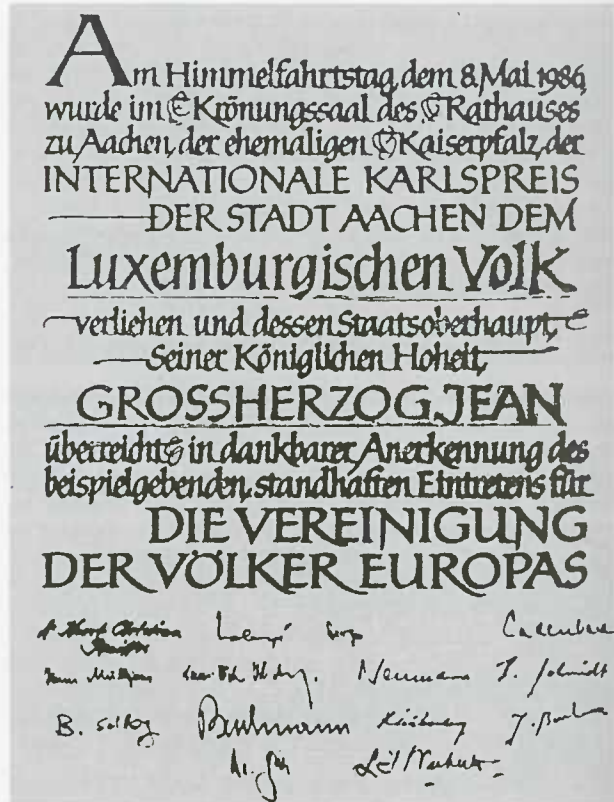 Am Himmelfahrtstag, dem 8. Mai 1986,
wurde im Krönungssaal des Rathauses
zu Aachen, der ehemaligen Kaiserpfalz, der
INTERNATIONALE KARLSPREIS
DER STADT AACHEN DEM
Luxemburgischen Volk
verliehen und dessen Staatsoberhaupt,
Seiner Königlichen Hoheit,
GROSSHERZOG JEAN
überreicht in dankbarer Anerkennung des
beispielgebenden, standhaften Eintretens für
DIE VEREINIGUNG
DER VÖLKER EUROPAS
Cadenbach
Neumann J. Schmidt
B.